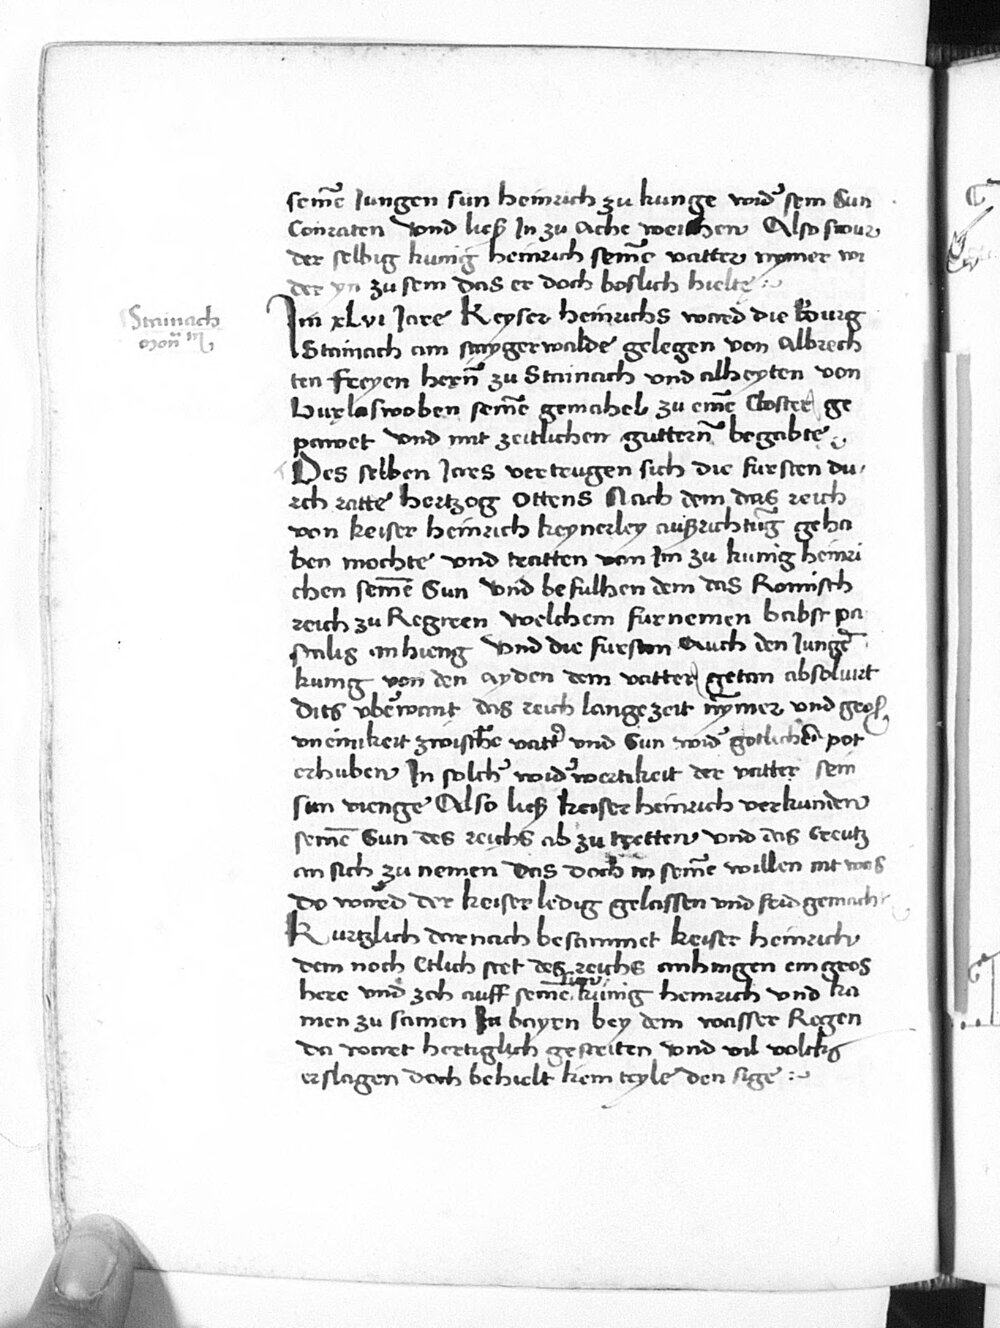 seine͂ Jungen sun heinrich zu kunge wid᷑ sein Sun
Conraten Vnd ließ In zu Ache weichen Also swur
der selbig kunig heinrich seine͂ vatter nymer wi
der yn zu sein das er doch boslich hielte :~
Im xLvi Jare Keyser heinrichs ward die Burg
Stainach
mon᷑
Stainach am staygerwalde gelegen von Albrech
ten freyen hern͂ zu Stainach vnd alheyten von
seine͂ gemahel zu eine͂ Closter ge
pawet Vnd mit zeitlichen guttern͂ begabte :~
Des selben Jares vertrugen sich die fursten du
rch ratte hertzog Ottens Nach dem das reich
von keiser heinrich keynerley außrichtu͂g geha
ben mochte vnd tratten von Im zu kunig heinri
chen seine͂ Sun Vnd befulhen dem das Romisch
reich zu Regiren welchem furnemen babst pa
scalis anhieng Vnd die fursten Auch den Junge͂
kunig von den ayden dem vatter getan absoluirt
Dits vbe᷑want das reich lange zeit nymer vnd groß
vneinikeit zwische͂ vatt᷑ vnd Sun wid᷑ gotliche͂ pot
erhuben In solch᷑ wid᷑wertikeit der vatter sein
sun vienge Also ließ keiser heinrich verkunden
seine͂ Sun des reichs ab zu tretten vnd das Creutz
an sich zu nemen Das doch in seine͂ willen nit was
Do ward der keiser ledig gelassen vnd frid gemacht
Kurtzlich darnach besammet keiser heinrich
dem noch Etlich stet des reichs anhingen ein gros
here vnd zoh auff seine͂ sun kunig heinrich vnd ka
men zu samen In bayrn bey dem wasser Regen
da waret hertiglich gestriten vnd vil volcks
erslagen doch behielt kein teyle den sige :~